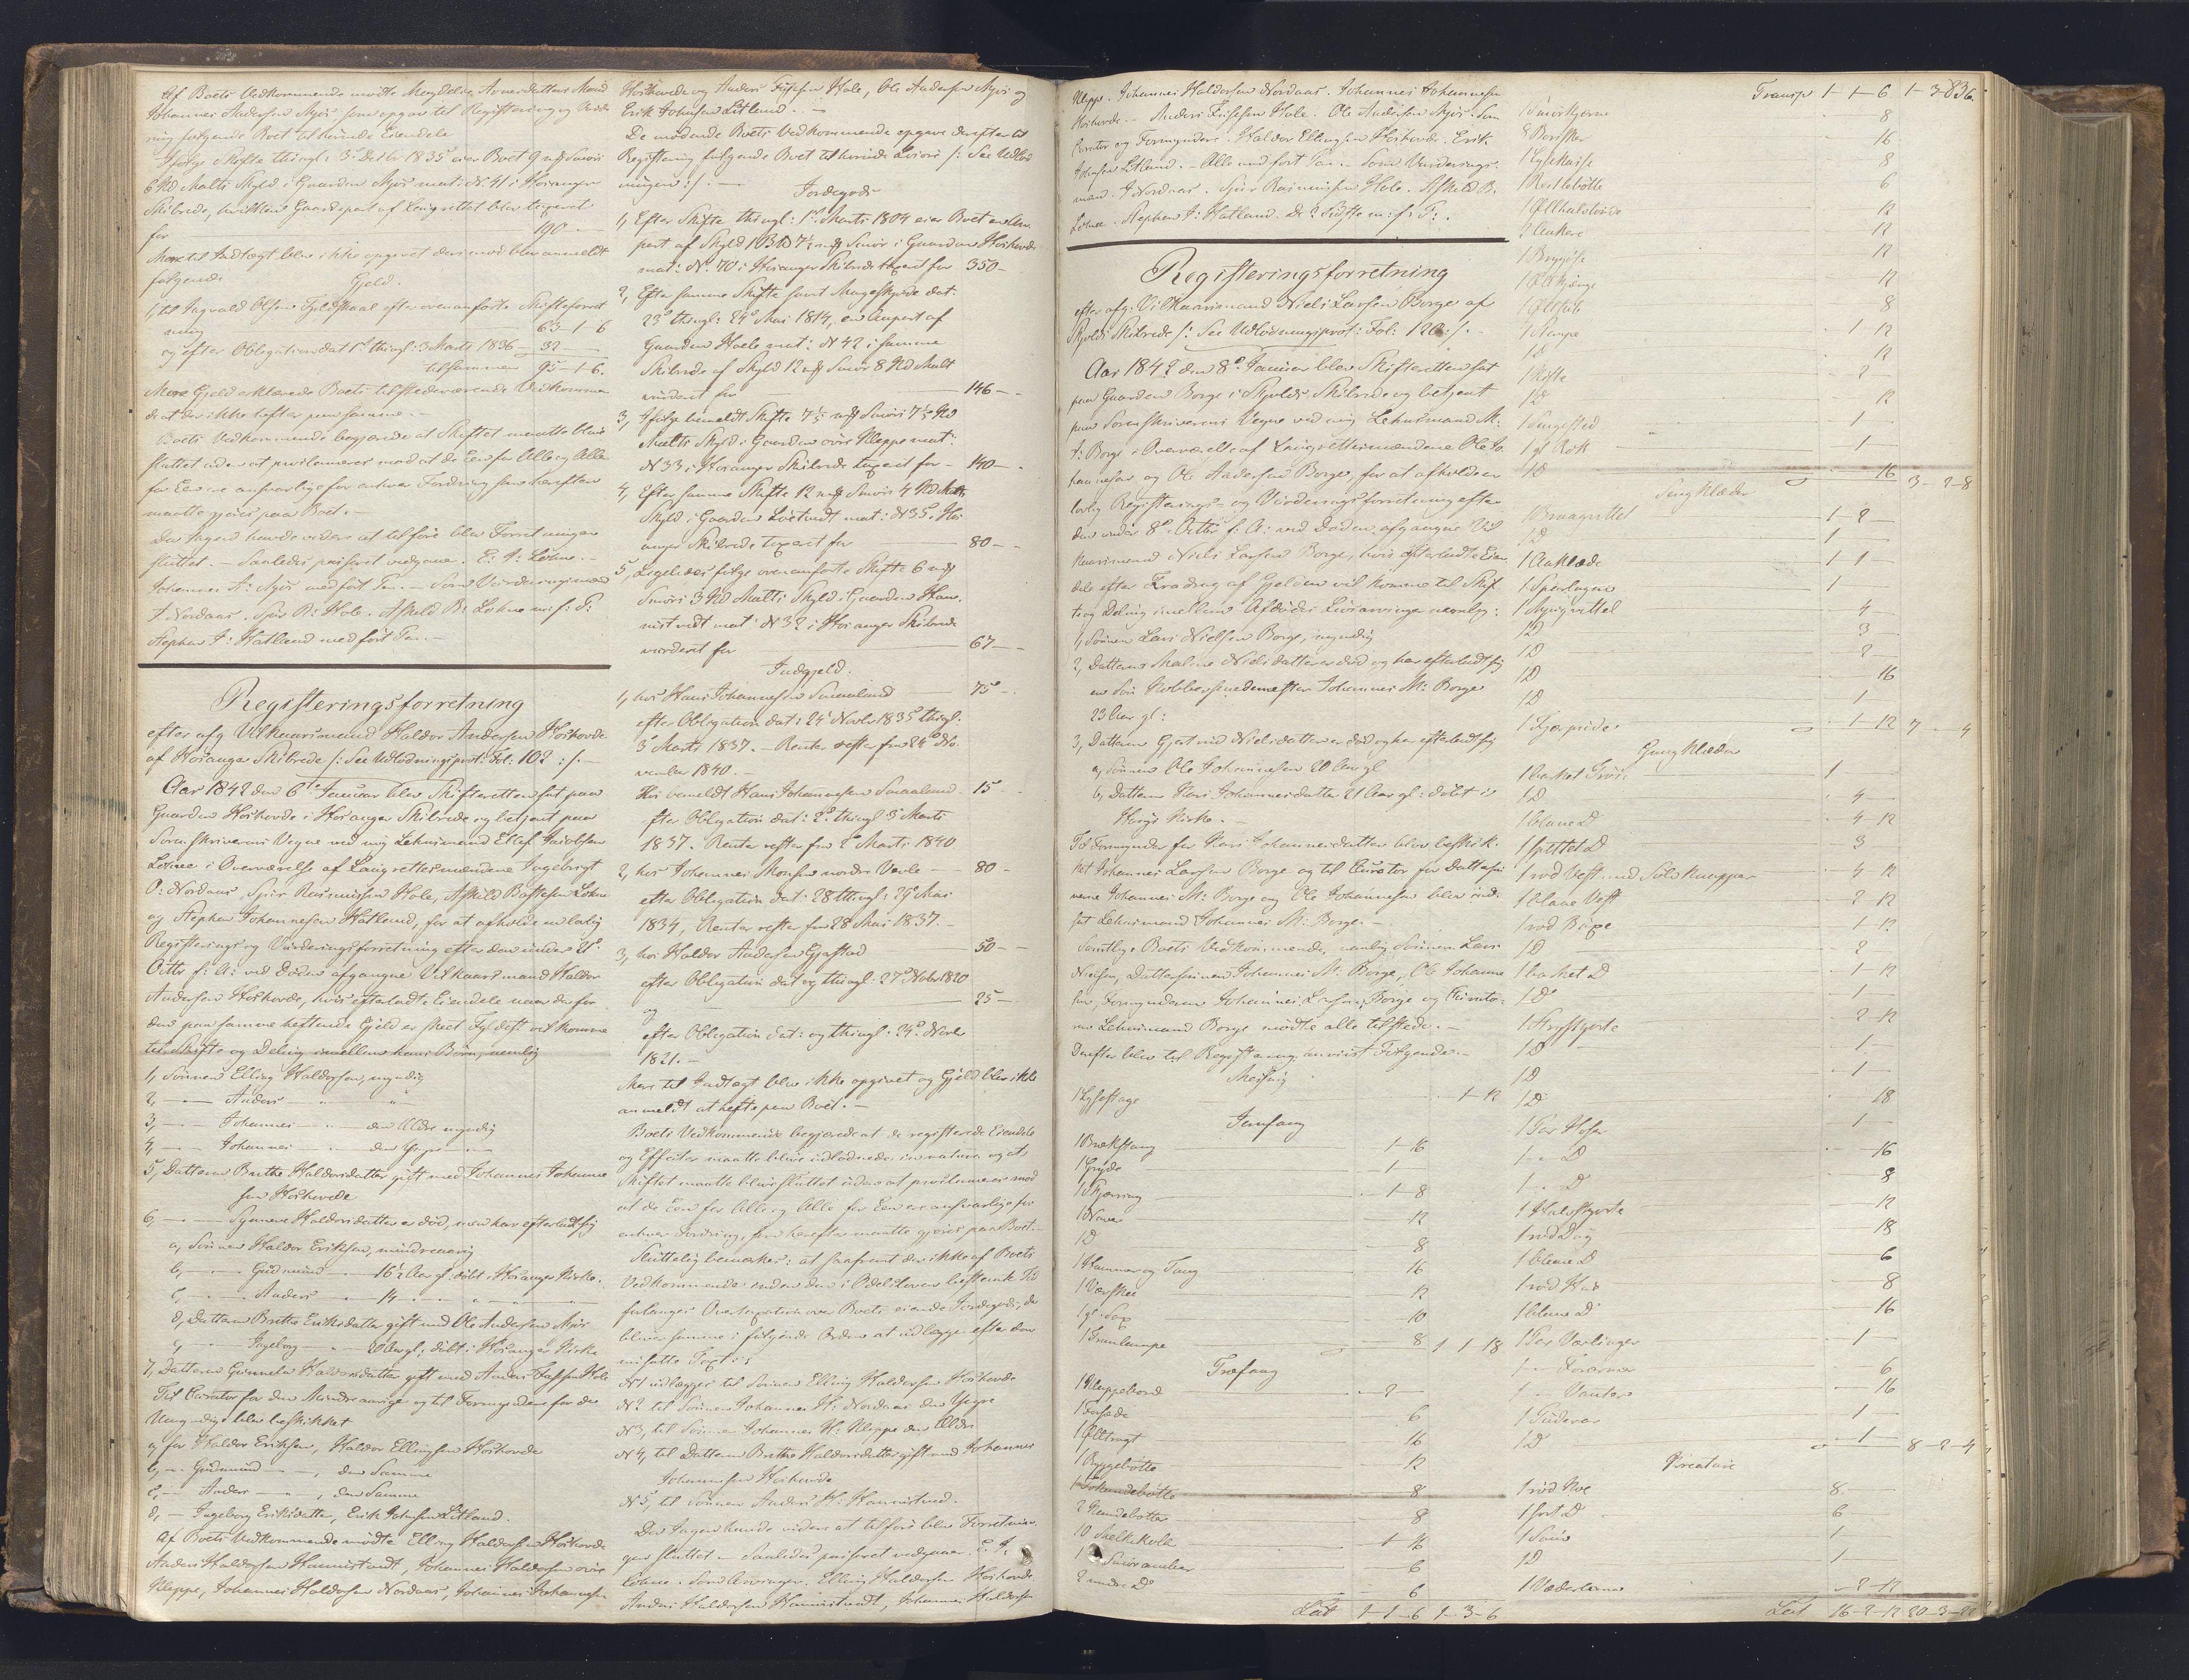 Af Boets Vedkommende mødte Magdelie Arnesdatters Mand
Johannes Andersen Myr, som opgav til Registrering og Vurde
ring følgende Boet tilhørende Eiendele
Ifølge Skifte thingl: 3 Decbr 1835 eier Boet 9 mks Smørs
6 Kd Malts Skyld i Gaarden Myr mat: No 41 i Hosanger
Skibrede, hvilken Gaardepart af Laugrettet blev taxeret
for 190 -
Mere til Indtægt blev ikke opgivet derimod blev anmeldt
følgende Gjeld.
1, til Ingvald Olsen Fyldskaal efter ovenanførte Skifteforret
ning 63-1-6
og efter Obligation dat 1 thingl: 3 Marts 1836 - 32
tilsammen 95-1-6.
Mere Gjeld erklærede Boets tilstedeværende Vedkommen
de at der ikke hefter paa samme. -
Boets Vedkommende begjærede at Skiftet maatte blive
sluttet uden at proclameres mod at de Een for Alle og Alle
for Een ere ansvarlige for enhver Fordring som herefter
maatte gjøres paa Boet. -
Da Ingen havde videre at tilføre blev Forretningen
sluttet. - Saaledes passeret vedgaaer. E: I: Lohne. -
Johannes A: Myr med ført Pen. - Som Vurderingsmænd
I. Nordaas. Siur R: Hole. Askild B: Lohne m: f: P:
Stephen I: Hatland med ført Pen. -
Registeringsforretning
efter afg Vilkaarsmand Haldor Andersen Hoshovde
af Hosanger Skibrede /: See Udlodningsprot: Fol: 102 :/. -
Aar 1842 den 6te Januar blev Skifteretten sat paa
Gaarden Hoshovde i Hosanger Skibrede og betjent paa
Sorenskriverens Vegne ved mig Lehnsmand Ellef Jacobsen
Lohne i Overværelse af Laugrettesmændene Ingebrigt
O: Nordaas, Siur Rasmussen Hole, Askild Baardsen Lohne
og Stephen Johannesen Hatland, for at afholde en lovlig
Registerings og Vurderingsforretning efter den under 21
Octbr f: A: ved Døden afgangne Vilkaarsmand Haldor
Andersen Hoshovde, hvis efterladte Eiendele naar den for
den paa samme heftende Gjeld er skeet Fyldest vil komme
til Skifte og Deling imellem hans Børn, nemlig
1, Sønnen Elling Haldorsen, myndig
2, - - Anders " "
3, - - Johannes - " - den Ældre myndig
4, - - Johannes " den Yngre - " -
5, Datteren Brithe Haldorsdatter gift med Johannes Johanne
sen Hoshovde
6, - - Synneve Haldorsdatter er død, men har efterladt sig
a, Sønnen Haldor Eriksen, mindreaarig
b, - - Gudmund - 16½ Aar gl: døbt i Hosanger Kirke.
c, - - Anders - 14 - " - " -
d, Datteren Brithe Eriksdatter gift med Ole Andersen Myr
e, - - Ingeborg - " - 20 Aar gl: døbt i Hosanger Kirke
7, Datteren Gunnela Haldorsdatter gift med Anders Fassen Hole
Til Curator for den Mindreaarige og til Formyndere for de
Umyndige blev beskikket
a, for Haldor Eriksen, Haldor Ellingsen Hoshovde
b, - - Gudmund - " -, den Samme
c, - Anders - " -, den Samme
d, - Ingeborg Eriksdatter, Erik Johnsen Litland.
Af Boets Vedkommende mødte Elling Haldorsen Hoshovde
Anders Haldorsen Hannistvedt, Johannes Haldorsen øvre
Kleppe, Johannes Haldorsen Nordaas, Johannes Johannesen
Hoshovde og Anders Fassen Hole, Ole Andersen Myr og
Erik Johnsen Litland. -
De mødende Boets Vedkommende opgave derefter til
Registering følgende Boet tilhørende Løsøre /: See Udlod
ningen :/. -
Jordegods
1, Efter Skifte thingl: 1 Marts 1804 eier Boet en An
part af Skyld 1 Bd 7½ mks Smør i Gaarden Hoshovde
mat: No. 70 i Hosanger Skibrede taxeret for 350 -
2, Efter samme Skifte samt Mageskjøde dat.
23 thingl: 24 Mai 1814, en Anpart af
Gaarden Hole mat: No 42 i samme
Skibrede af Skyld 12 mks Smør 8 Kd Malt
vurderet for 146 -
3, Ifølge bemeldt Skifte 7½ mks Smørs 7½ Kd
Malts Skyld i Gaarden øvre Kleppe mat:
No 33 i Hosanger Skibrede taxeret for - 140 -
4, Efter samme Skifte 12 mks Smørs 4 Kd Malts
Skyld i Gaarden Løstvedt mat: No 35 i Hos
anger Skibrede taxeret for 80 -
5, Ligeledes følge ovenanførte Skifte 6 mks
Smørs 3 Kd Malts Skyld i Gaarden Han-
nistvedt mat: No 32 i Hosanger Skibrede
vurderet for 67 -
Indgjeld.
1, hos Hans Johannesen Smaaland 75 -
efter Obligation dat: 24 Novbr 1835 thingl.
3 Marts 1837. - Renter rester fra 24 No
vember 1840. -
Hos bemeldt Hans Johannesen Smaaland - 15 -
efter Obligation dat: 2 thingl 3 Marts
1837. Renter rester fra 2 Marts 1840
2, hos Johannes Monsen nordre Vevle - 80 -
efter Obligation dat: 28 thingl: 29 Mai
1834, Renter rester fra 28 Mai 1837. -
3, hos Haldor Andersen Gjestad 50 -
efter Obligation dat og thingl: 27 Novbr 1820
og 25 -
efter Obligation dat: og thingl. 24 Novbr
1821. -
Mere til Indtægt blev ikke opgivet og Gjeld blev ikke
anmeldt at hefte paa Boet. -
Boets Vedkommende begjærede at de registerede Eiendele
og Effecter maatte blive udlodnede in natura og at
Skiftet maatte blive sluttet uden at proclameres mod
at de Een for Alle og Alle for Een ere ansvarlige for
enhver Fordring, som herefter maatte gjøres paa Boet. -
Sluttelig bemærkes: at saafremt der ikke af Boets
Vedkommende inden den i Odelsloven bestemte Tid
forlanges Overtaxation over Boets eiende Jordegods, da
bliver samme i følgende Orden at udlægge efter den
ansatte Taxt:
No 1 udlægges til Sønnen Elling Haldorsen Hoshovde
No 2 til Sønnen Johannes H: Nordaas den Yngre
No 3, til Sønnen Johannes H: Kleppe den Ældre
No 4, til Datteren Brithe Haldorsdatter gift med Johannes
Johannesen Hoshovde
No 5, til Sønnen Anders H: Hannistved.
Da Ingen havde videre at tilføre blev Forretnin
gen sluttet. - Saaledes passeret vedgaaer. E. I.
Lohne. Som Arvinger. Elling Haldorsen Hoshovde.
Anders Haldorsen Hannistvedt, Johannes Haldorsen
Kleppe. Johannes Haldorsen Nordaas. Johannes Johannesen
Hoshovde. - Anders Fassen Hole. Ole Andersen Myr. Som
Curator og Formyndere. Haldor Ellingsen Hoshovde. Erik
Johnsen Litland. - Alle med ført Pen. - Som Vurderings-
mænd. I Nordaas. Siur Rasmussen Hole. Askild B.
Lohne. Stephen I: Hatland. De 2 Sidste m: f: P: .
Registeringsforretning
efter afg: Vilkaarsmand Niels Larsen Borge af
Skjolds Skibrede /: See Udlodningsprot: Fol: 120 :/. -
Aar 1842 den 8 Januar blev Skifteretten sat
paa Gaarden Borge i Skjolds Skibrede og betjent
paa Sorenskriverens Vegne ved mig Lehnsmand M:
I: Borge i Overværelse af Laugrettesmændene Ole Jo
hannesen og Ole Andersen Borge, for at afholde en
lovlig Registerings- og Vurderingsforretning efter
den under 8 Octbr f: A: ved Døden afgangne Vil
kaarsmand Niels Larsen Borge, hvis efterladte Eien
dele efter Fradrag af Gjelden vil komme til Skif
te og Deling imellem Afdødes Livsarvinge nemlig:
1, Sønnen Lars Nielsen Borge, myndig
2, Datteren Malene Nielsdatter er død og har efterladt sig
en Søn Kobbersmedmester Johannes M: Borge
23 Aar gl:
3, Datteren Gjertrud Nielsdatter er død og har efterladt sig
a, Sønnen Ole Johannesen 20 Aar gl
b, Datteren Kari Johannesdatter 21 Aar gl: døbt i
Haugs Kirke. -
Til Formynder for Kari Johannesdatter blev beskik-
ket Johannes Larsen Borge og til Curator for Dattersøn
nerne Johannes M: Borge og Ole Johannesen blev ind-
sat Lehnsmand Johannes M: Borge. -
Samtlige Boets Vedkommende, nemlig Sønnen Lars
Nielsen, Dattersønnen Johannes M: Borge, Ole Johanne
sen, Formynderen Johannes Larsen Borge og Curato-
ren Lehnsmand Borge mødte alle tilstede. -
Derefter blev til Registering anvist Følgende. -
Messing
1 Lysestage 1-12
Jernfang
1 Brækstang 1-16
1 Gryde 1 -
1 Skjæring 1-8
1 Naver 12
1 D 8
1 Hammer og Tang 16
1 12
1 gl: Sax 10
1 Tranlampe 8 1-1-18
Træfang
1 Kleppebord 2 -
1 6
1 Øltragt 16
1 Ryggebøtte 12
1 8
2 Kundebøtter 8
10 Melkekoler 1-16
1 Smørambar 6
2 mindre D 6
Lat 1-1-6 1-3-6
Transp 1-1-6 1-3-6 836.
1 Smørkjerne 8
8 Børisker 16
1 Lysekasse 8
1 Restlebøtte 6
1 Ølhalstønde 12
2 Ankere 12
1 12
1 12
1 8
1 Kumpe 1-12
1 D 12
1 Kiste 2 -
1 D 12
1 Sengested 1 -
1 gl Rok 1 -
1 D 16 3-2-8
Sengklæder
1 1-2
1 D 1 -
1 Aaklæde 1-1
1 Sperlagen 1 -
1 4 -
1 D 3 -
1 D 2 -
1 D 16
1 D 1 -
1 1-12 7-4
Gangklæder
1 Trøie 1
1 D 4 -
1 blaae D 4-12
1 D 3
1 rød Vest med Sølvknapper 4-12
1 blaae Vest 2-12
1 rød Buxe 1-12
1 D 2
1 D 1-12
1 D 1 -
1 Strieskjorte 2-12
1 D 1 -
1 D 1 -
1 D 18
1 Par Hoser 1 -
1 - D 16
1 - D 8
1 Halsskjorte 12
1 rød Dug 18
1 blaae D 6
1 rød Hue 8
1 blaae D 16
1 Par Vævlinger 1 -
1 - 6
1 - Vanter 16
1 Pudevar 1 -
1 D 1 - 8-2-4
Creature
1 rød Koe 8 -
1 sort D 6 -
1 Souv 1
1 D 1 -
1 Væderlam 2-12
Lat 16-2-12 20-3-22